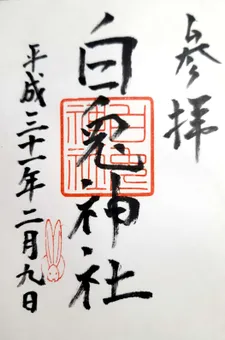 参拝
白兎神社
平成三十一年二月九日